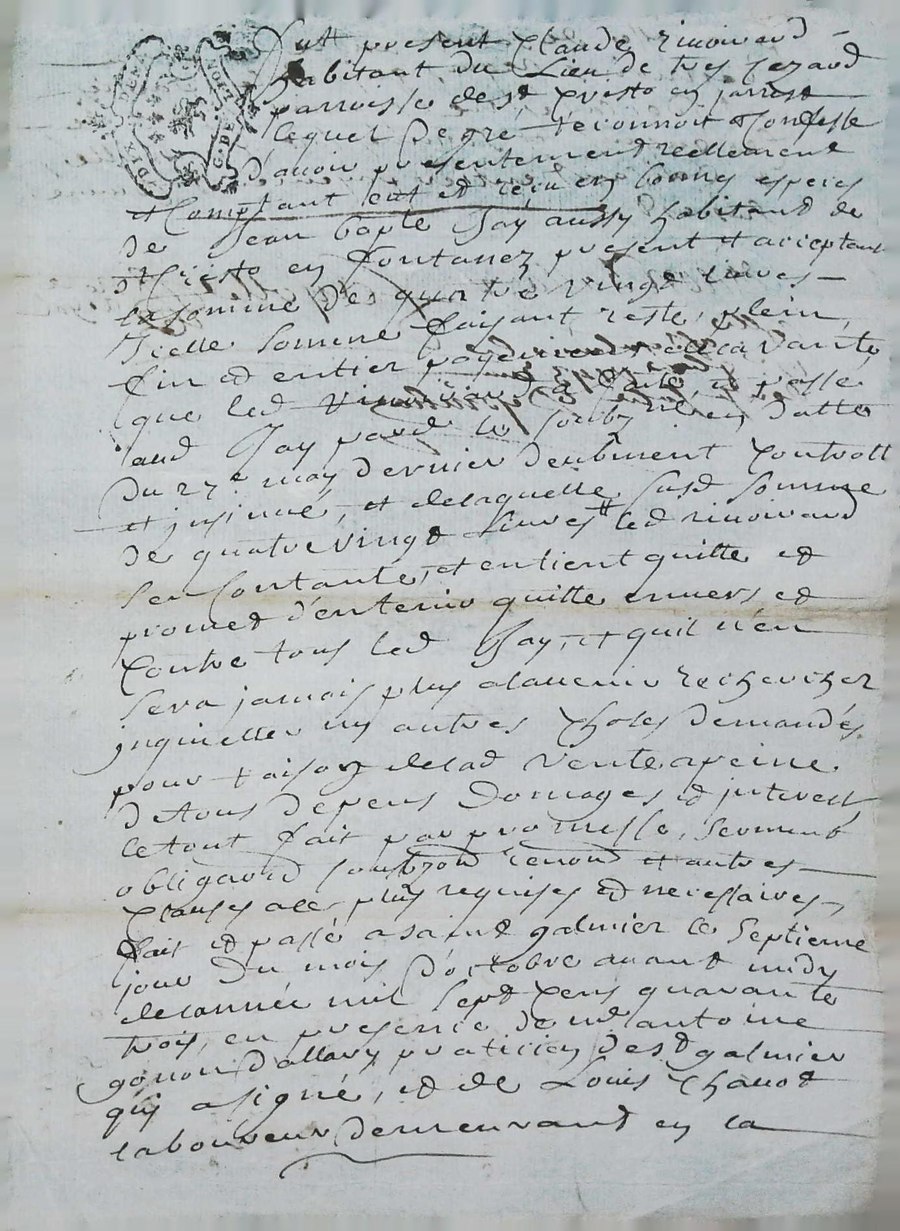 DIX DEN
G. DE LION
fut present Claude rinoirard
habitant du Lieu de tres cezaud
parroisse de st Cristo en jarrest
lequel de gré reconnoit Confesse
d'avoir presentement reellement
et Comptant eut et reçu en bonnes especes
de Jean bapte Jay aussy habitand de
st Cristo en fontanez present et acceptant
la somme de quatre vingt livres
Icelle somme faisant reste, plein,
fin et entier payement de la vante
que led rinoirard a passé
aud Jay pard le
du 27e may dernier deubment Controllé
et insinué, et de laquelle susd somme
de quatre vingt Livres led rinoirard
sen Contante, et entient quitte et
promet d'entenir quitte envers et
Contre tous led Jay, et quil n'en
sera jamais plus alauenir recherchez
inquietter ny autres Choses demandés
pour raison delad vente apeine
detous depens Domages et interest
le tout fait par promesse, serment
obligaond soubzon renond et autres
Clauses alles plus requises et necessaires,
fait et passé a saint galmier le septieme
jour Du mois D'octobre auant midy
delannée mil sept Cens quarante
trois, en presence de me antoine
gonon d'allary praticien de st galmier
quy a signé, et de Louis Chauot
laboureur demeurant en la